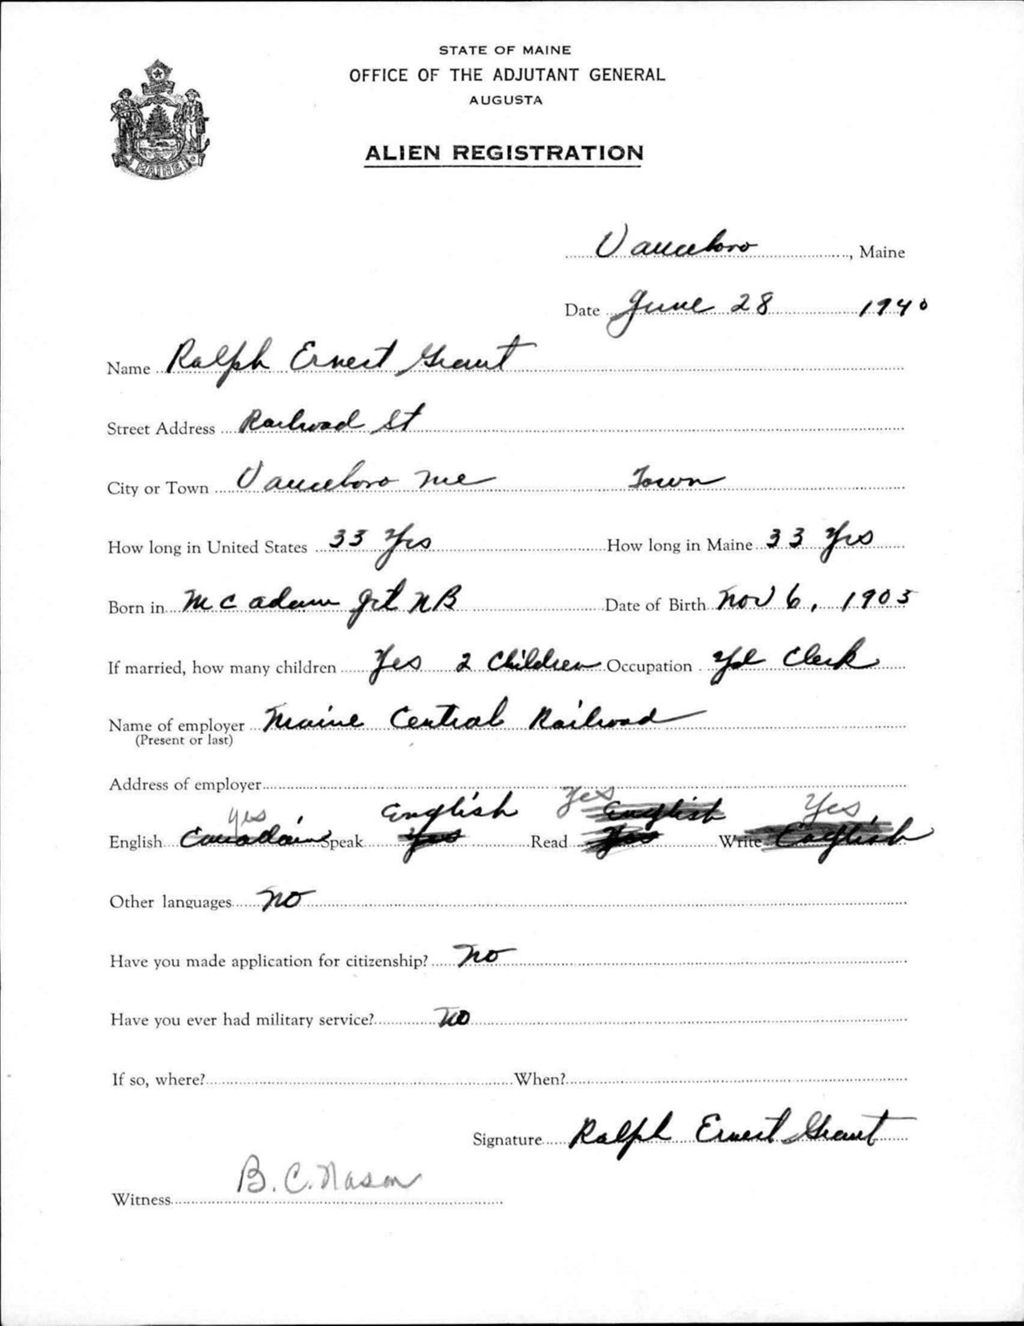 STATE OF MAINE
OFFICE OF THE ADJUTANT GENERAL
AUGUSTA
ALIEN REGISTRATION
MAINE
Vanceboro, Maine
Date June 28 1940
Name Ralph Ernest Grant
Street Address Railroad St
City or Town Vanceboro Me Town
How long in United States 33 Yrs How long in Maine 33 Yrs
Born in McAdam Jct NB Date of Birth Nov 6, 1905
If married, how many children Yes 2 Children Occupation Yd Clerk
Name of employer Maine Central Railroad
(Present or last)
Address of employer
yes English Yes English Yes
English Canadain Speak Yes Read Yes Write English
Other languages No
Have you made application for citizenship? No
Have you ever had military service? No
If so, where? When?
Signature Ralph Ernest Grant
Witness B. C. Nason